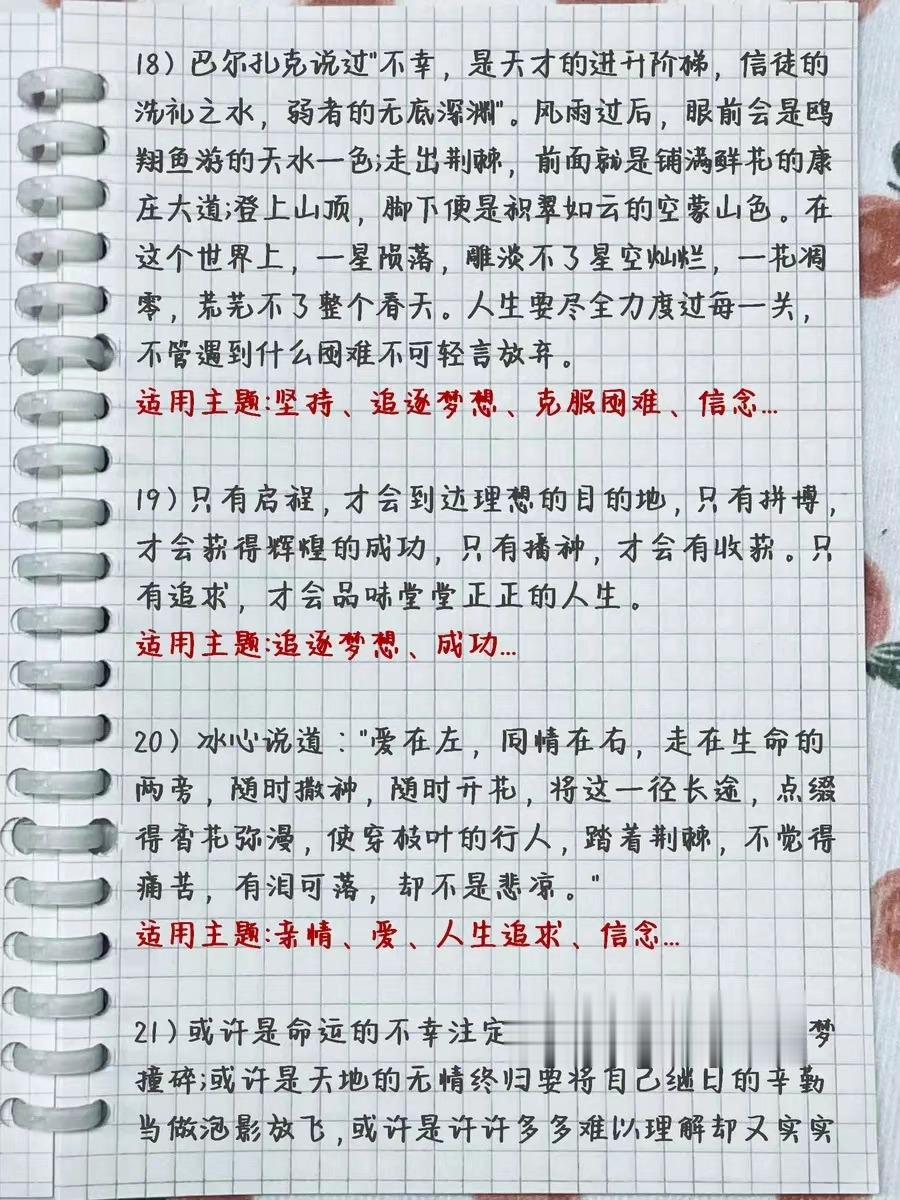 18）巴尔扎克说过"不幸，是天才的进升阶梯，信徒的
洗礼之水，弱者的无底深渊"。风雨过后，眼前会是鸥
翔鱼游的天水一色;走出荆棘，前面就是铺满鲜花的康
庄大道;登上山顶，脚下便是积翠如云的空蒙山色。在
这个世界上，一星陨落，雕淡不了星空灿烂，一花凋
零，荒芜不了整个春天。人生要尽全力度过每一关，
不管遇到什么困难不可轻言放弃。
适用主题:坚持、追逐梦想、克服困难、信念...
19）只有启程，才会到达理想的目的地，只有拼博，
才会获得辉煌的成功，只有播种，才会有收获。只
有追求，才会品味堂堂正正的人生。
适用主题:追逐梦想、成功...
20）冰心说道："爱在左，同情在右，走在生命的
两旁，随时撒种，随时开花，将这一径长途，点缀
得香花弥漫，使穿枝叶的行人，踏着荆棘，不觉得
痛苦，有泪可落，却不是悲凉。"
适用主题:亲情、爱、人生追求、信念...
21）或许是命运的不幸注定 梦
撞碎;或许是天地的无情终归要将自己继日的辛勤
当做泡影放飞，或许是许许多多难以理解却又实实